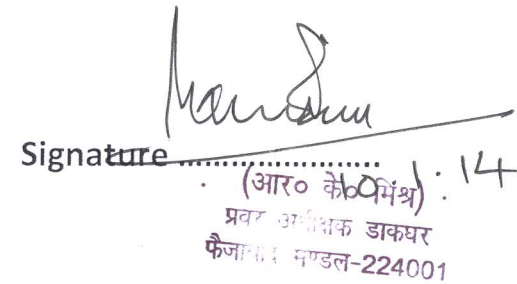 Signature ....................
(आर० के० मिश्र) : 14
प्रवर अधीक्षक डाकघर
फैजाबाद मण्डल-224001